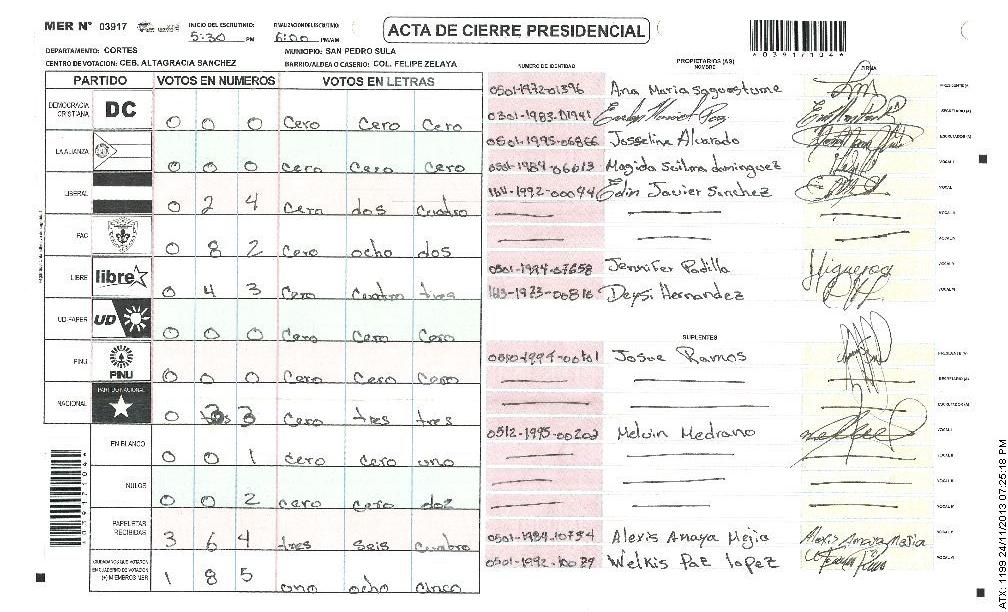 MER Nº 03917
INICIO DEL ESCRUTINIO: 5:30 PM
FINALIZACION DEL ESCRUTINIO: 6:00 PM/AM
ACTA DE CIERRE PRESIDENCIAL
*03917104*
DEPARTAMENTO: CORTES MUNICIPIO: SAN PEDRO SULA
CENTRO DE VOTACION: CEB. ALTAGRACIA SANCHEZ BARRIO/ALDEA O CASERIO: COL. FELIPE ZELAYA
PARTIDO VOTOS EN NUMEROS VOTOS EN LETRAS
DEMOCRACIA CRISTIANA DC 0 0 0 Cero Cero Cero
LA ALIANZA 0 0 0 Cero Cero Cero
LIBERAL 0 2 4 Cero dos cuatro
PAC 0 8 2 Cero ocho dos
LIBRE libre 0 4 3 Cero Cuatro tres
UD-FAPER UD 0 0 0 Cero Cero Cero
PINU PINU 0 0 0 Cero Cero Cero
NACIONAL PARTIDO NACIONAL 0 3 3 Cero tres tres
EN BLANCO 0 0 1 Cero Cero uno
NULOS 0 0 2 Cero Cero dos
PAPELETAS RECIBIDAS 3 6 4 tres seis cuatro
CIUDADANOS QUE VOTARON EN CUADERNO DE VOTACION (+) MIEMBROS MER 1 8 5 uno ocho cinco
NUMERO DE IDENTIDAD PROPIETARIOS (AS) NOMBRE FIRMA
0501-1972-01396 Ana Maria Sagastume PRESIDENTE (A)
SECRETARIO (A)
0501-1995-06866 Josseline Alvarado ESCRUTADOR (A)
0501-1984-06013 Magida Suilma dominguez VOCAL I
Edin Javier Sanchez VOCAL
VOCAL
VOCAL
Jennifer Padilla Higueroa VOCAL
Deysi Hernandez VOCAL
SUPLENTES
Josue Ramos PRESIDENTE (A)
SECRETARIO (A)
ESCRUTADOR (A)
0512-1995-00202 Melvin Medrano VOCAL I
VOCAL
VOCAL
VOCAL
0501-1984-10734 Alexis Anaya Mejia Alexis Anaya Mejia VOCAL
Welkis Paz Lopez VOCAL
*03917104*
ATX: 1199 24/11/2013 07:25:18 PM